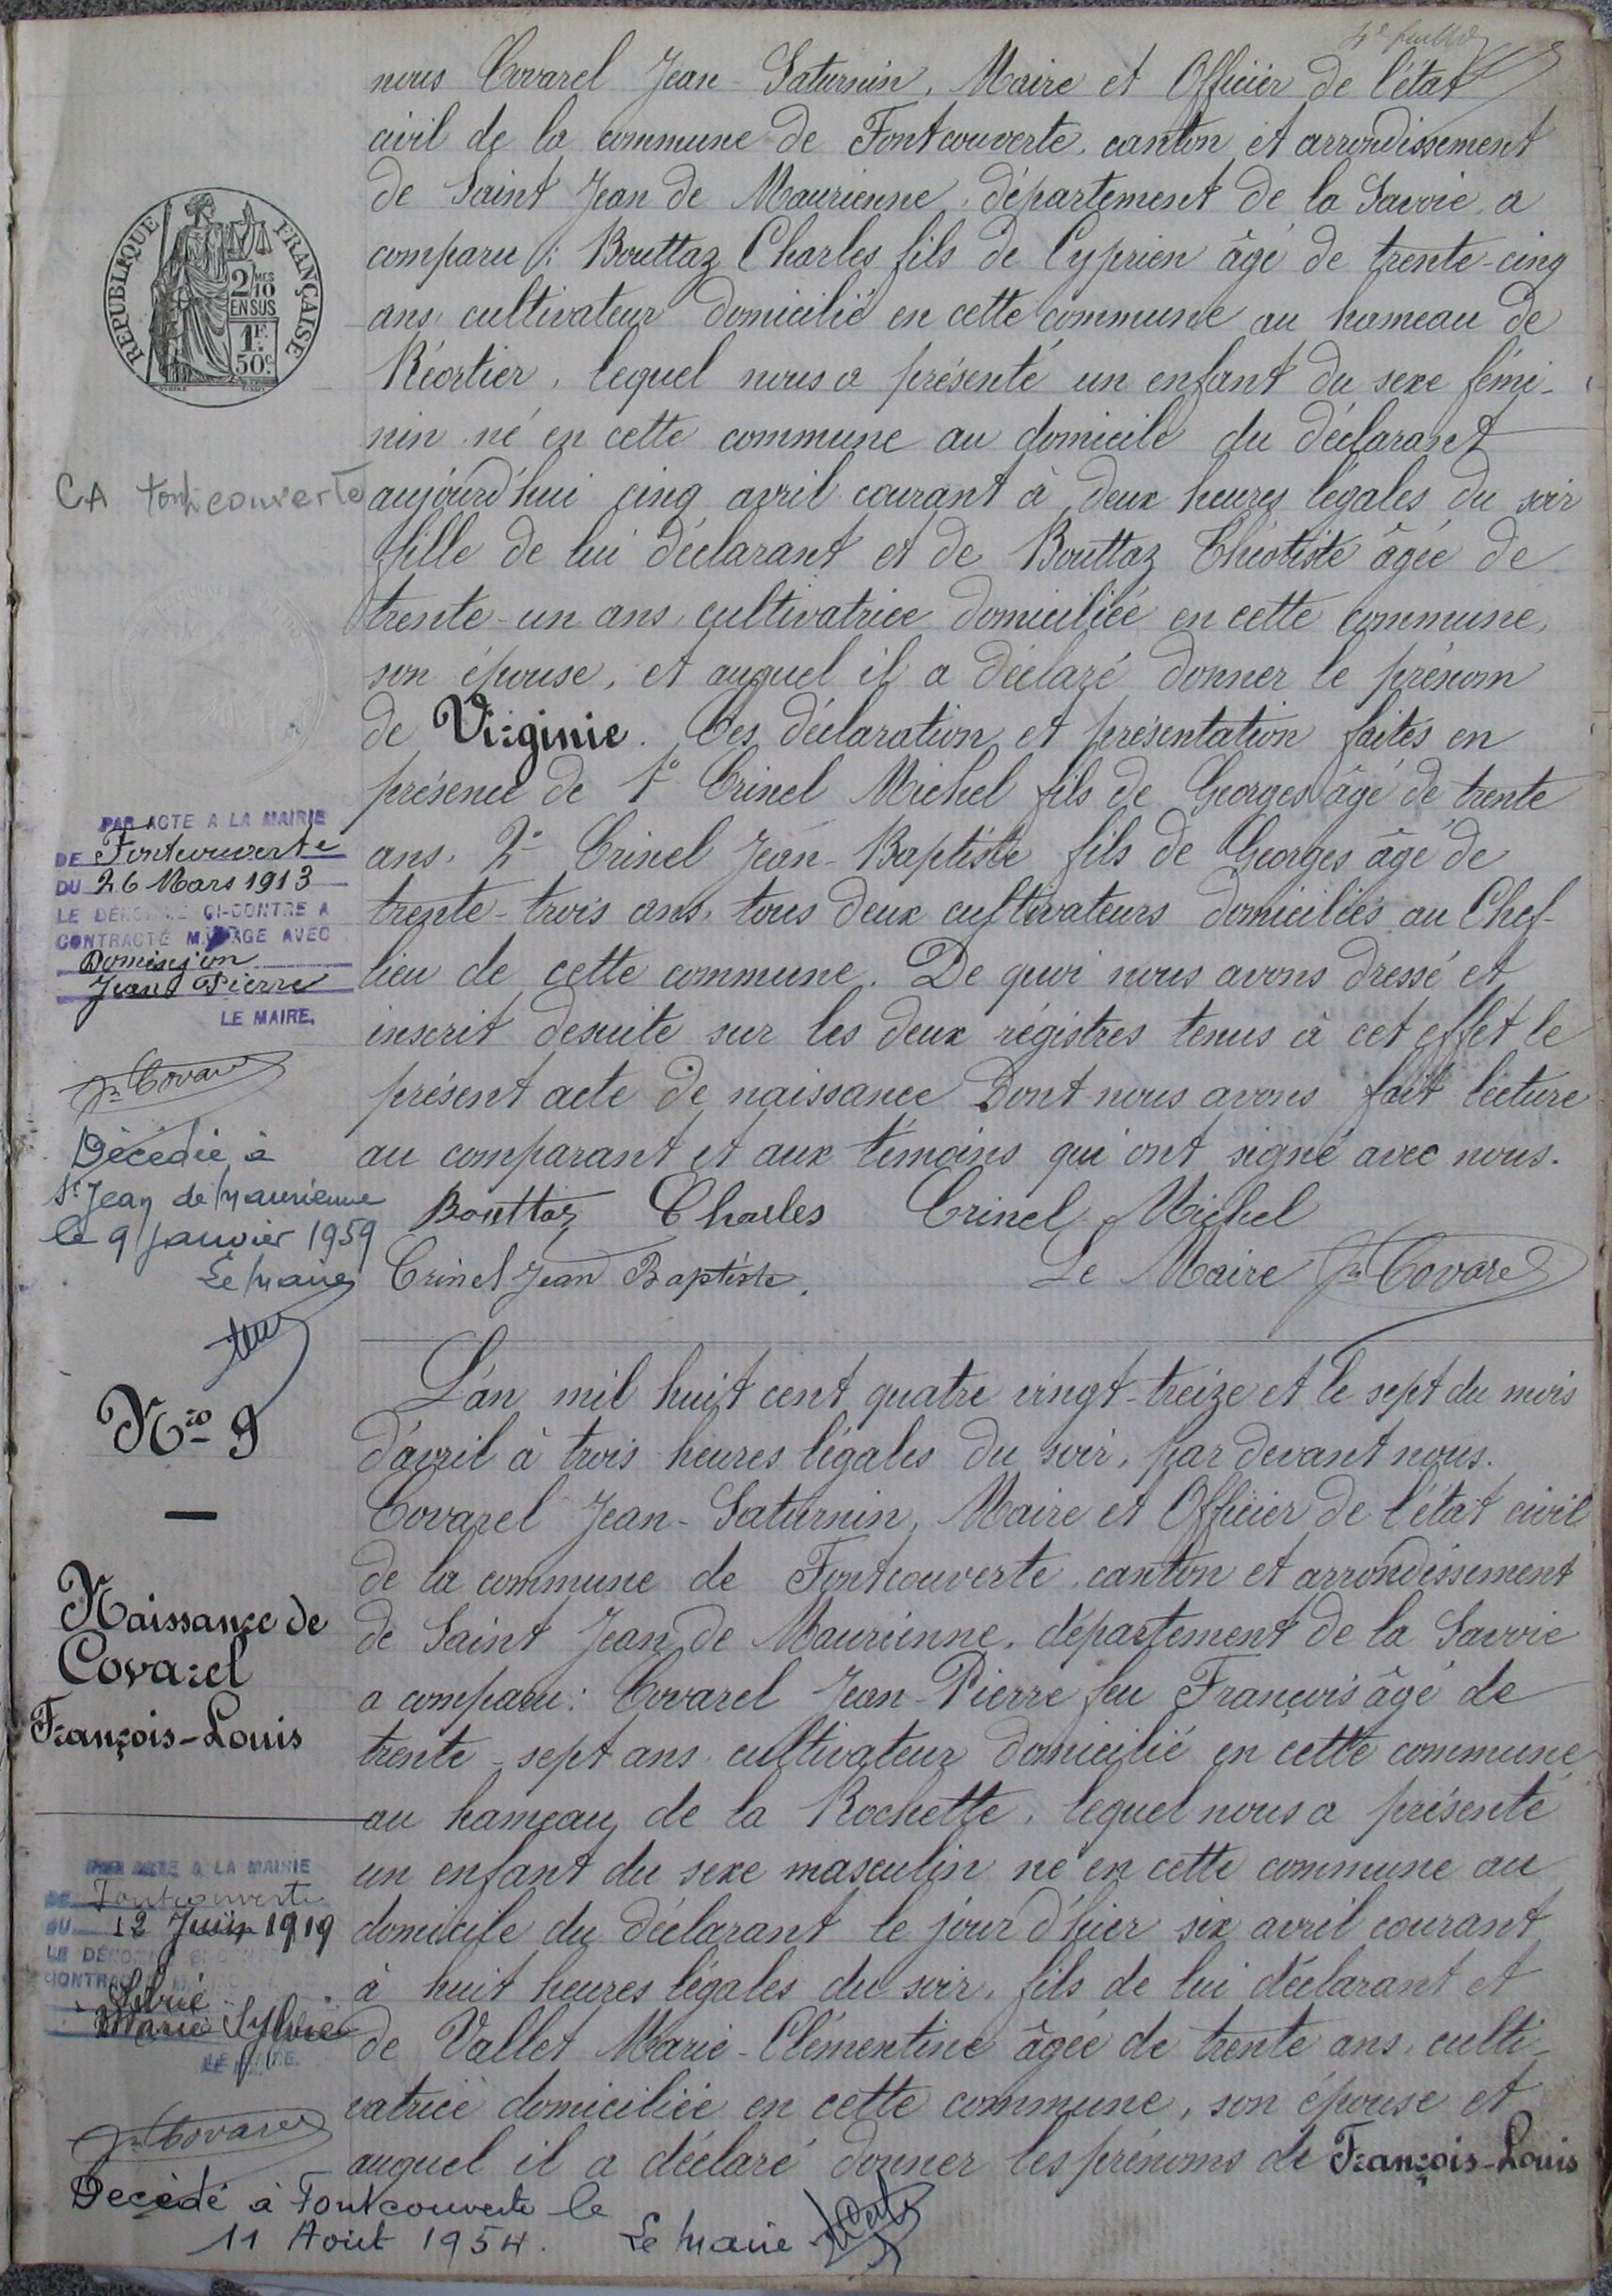 4e feuillet
nous Covarel Jean-Saturnin, Maire et Officier de l'état
civil de la commune de Fontcouverte, canton et arrondissement
de Saint Jean de Maurienne, département de la Savoie, a
comparu : Bouttaz Charles fils de Cyprien âgé de trente-cinq
ans, cultivateur domicilié en cette commune au hameau de
Réortier, lequel nous a présenté un enfant du sexe fémi-
nin né en cette commune au domicile du déclarant
aujourd'hui cinq avril courant à deux heures légales du soir
fille de lui déclarant et de Bouttaz Théotiste âgée de
trente-un ans, cultivatrice domiciliée en cette commune,
son épouse, et auquel il a déclaré donner le prénom
de Virginie. Ces déclaration et présentation faites en
présence de 1° Crinel Michel fils de Georges âgé de trente
ans, 2° Crinel Jean-Baptiste fils de Georges âgé de
trente-trois ans, tous deux cultivateurs domiciliés au Chef-
lieu de cette commune. De quoi nous avons dressé et
inscrit desuite sur les deux régistres tenus à cet effet le
présent acte de naissance dont nous avons fait lecture
au comparant et aux témoins qui ont signé avec nous.
Bouttaz Charles Crinel Michel
Crinel Jean Baptiste. Le Maire Jn Covarel
REPUBLIQUE FRANÇAISE
2/10 MES
EN SUS
1F.
50c.
CA fontcouverte
PAR ACTE A LA MAIRIE
DE Fontcouverte
DU 26 Mars 1913
LE DÉNOMMÉ CI-CONTRE A
CONTRACTÉ MARIAGE AVEC
Dominjon
Jean Pierre
LE MAIRE,
Jn Covarel
Décédée à
St Jean de Maurienne
le 9 Janvier 1959
Le Maire
Nro 9
Naissance de
Covarel
François-Louis
L'an mil huit cent quatre vingt-treize et le sept du mois
d'avril à trois heures légales du soir, par devant nous.
Covarel Jean-Saturnin, Maire et Officier de l'état civil
de la commune de Fontcouverte, canton et arrondissement
de Saint Jean de Maurienne, département de la Savoie
a comparu : Covarel Jean-Pierre feu François âgé de
trente-sept ans, cultivateur domicilié en cette commune
au hameau de la Rochette, lequel nous a présenté
un enfant du sexe masculin né en cette commune au
domicile du déclarant le jour d'hier six avril courant
à huit heures légales du soir, fils de lui déclarant et
de Vallet Marie-Clémentine âgée de trente ans, culti-
vatrice domiciliée en cette commune, son épouse et
auquel il a déclaré donner les prénoms de François-Louis
PAR ACTE A LA MAIRIE
DE Fontcouverte
DU 12 Juin 1919
LE DÉNOMMÉ
CONTRACTÉ
Marie Sylvie
LE MAIRE.
Jn Covarel
Decédé à Fontcouverte le
11 Août 1954. Le Maire